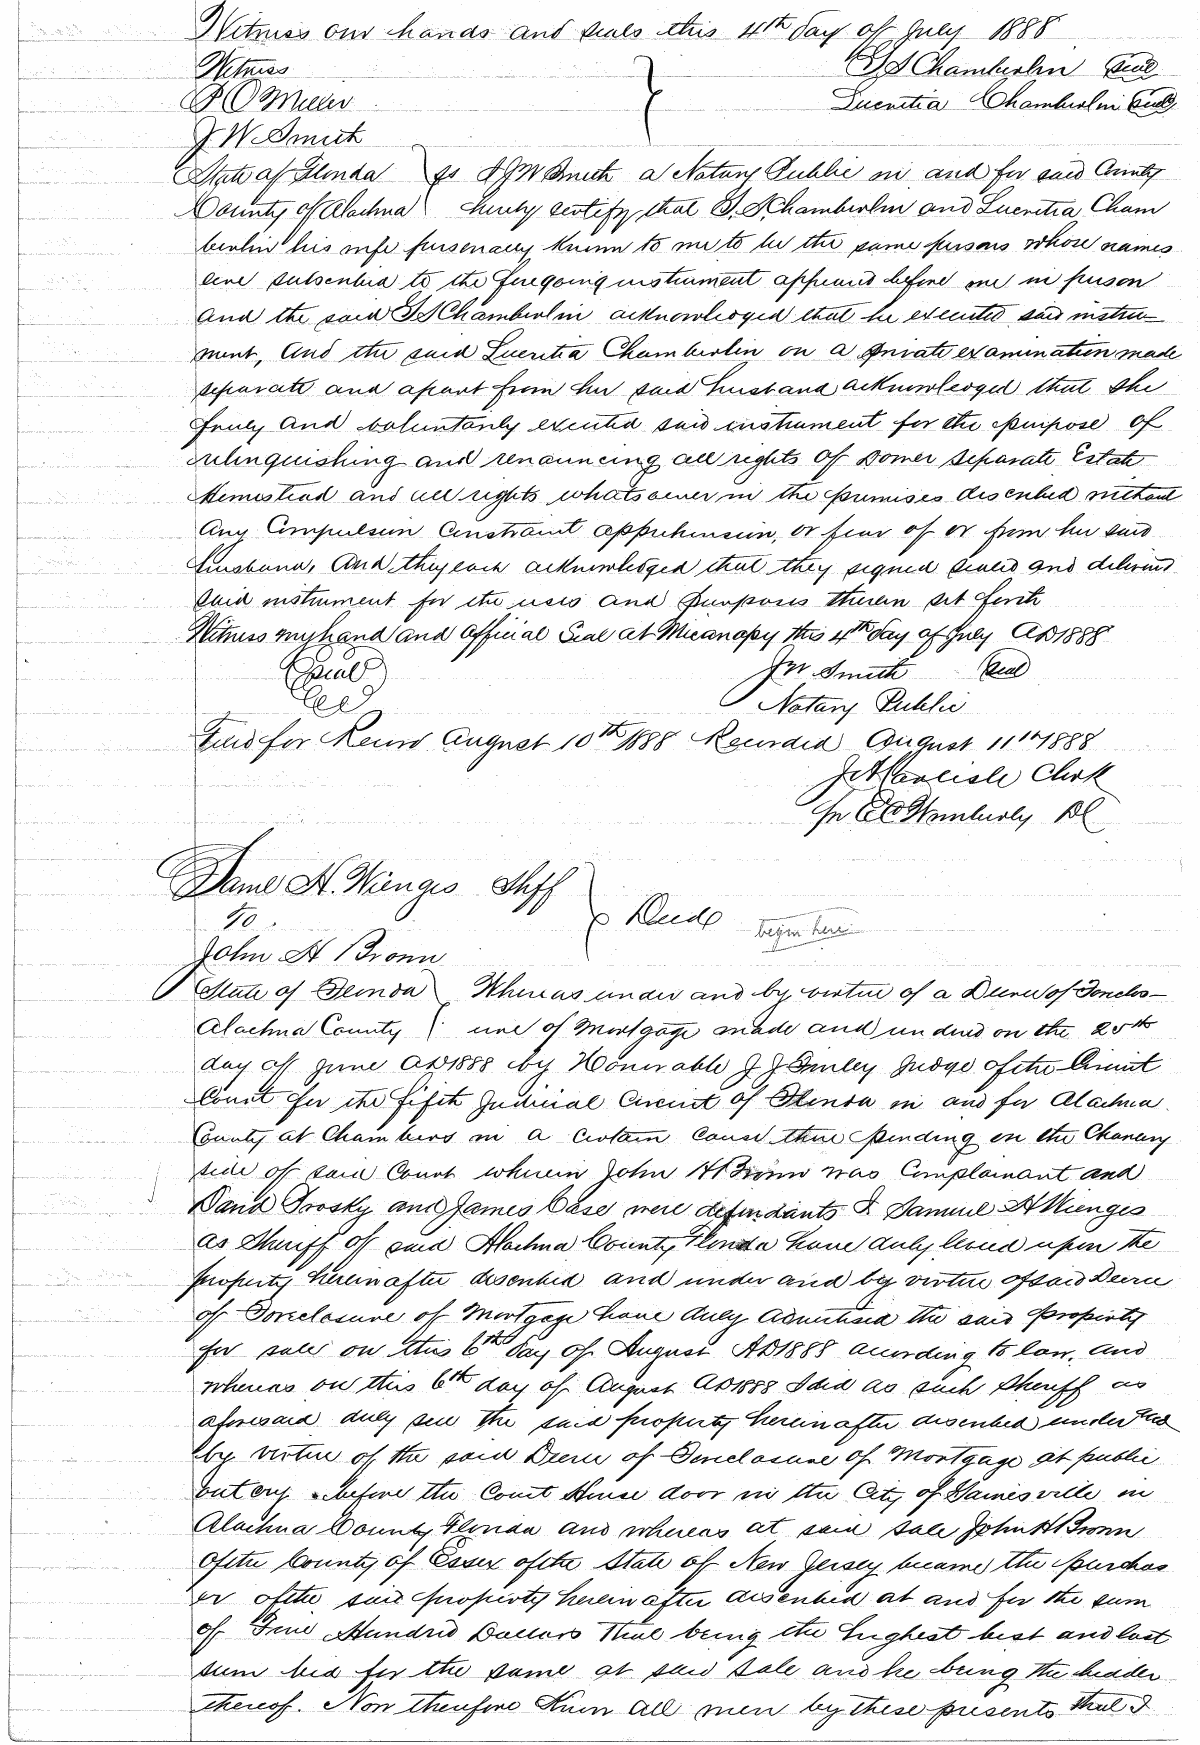 Witness our hands and seals this 4th day of July 1888
Witness S S Chamberlin Seal
P O Miller Lucretia Chamberlin Seal
J. W. Smith
State of Florida ss I J W Smith a Notary Public in and for said County
County of Alachua hereby certify that S. S Chamberlin and Lucretia Cham
berlin his wife personally known to me to be the same persons whose names
are subscribed to the foregoing instrument appeared before me in person
and the said S S Chamberlin acknowledged that he executed said instru-
ment, And the said Lucretia Chamberlin on a private examination made
separate and apart from her said husband acknowledged that she
freely and voluntarily executed said instrument for the purpose of
relinquishing and renouncing all rights of Dower Separate Estate
Homestead and all rights whatsoever in the premises described without
any Compulsion Constraint apprehension, or fear of or from her said
husband, And they each acknowledged that they signed sealed and delivered
said instrument for the uses and purposes therein set forth
Witness my hand and official Seal at Micanopy this 4th day of July AD 1888
Seal J W. Smith Seal
Notary Public
Filed for Record August 10th 1888 Recorded August 11th 1888
J A Carlisle Clerk
pr C C Wimberly DC
Saml H. Wienges Shff
To Deed begin here
John H Brown
State of Florida Whereas under and by virtue of a Decree of Foreclos-
Alachua County ure of Mortgage made and rendered on the 25th
day of June AD 1888 by Honorable J J Finley Judge of the Circuit
Court for the fifth Judicial Circuit of Florida in and for Alachua
County at Chambers in a certain cause there pending on the Chancery
side of said Court wherein John H Brown was Complainant and
David Trosky and James Case were defendants I. Samuel H Wienges
as Sheriff of said Alachua County Florida have duly levied upon the
property hereinafter described and under and by virtue of said Decree
of Foreclosure of Mortgage have duly advertised the said property
for sale on this 6th day of August AD 1888 according to law, and
whereas on this 6th day of August AD 1888 I did as such Sheriff as
aforesaid duly sell the said property hereinafter described under and
by virtue of the said Decree of Foreclosure of Mortgage at public
outcry before the Court House door in the City of Gainesville in
Alachua County Florida and whereas at said sale John H Brown
of the County of Essex of the State of New Jersey became the purchas
er of the said property hereinafter described at and for the sum
of Five Hundred Dollars that being the highest best and last
sum bid for the same at said sale and he being the bidder
thereof. Now therefore Know all men by these presents that I